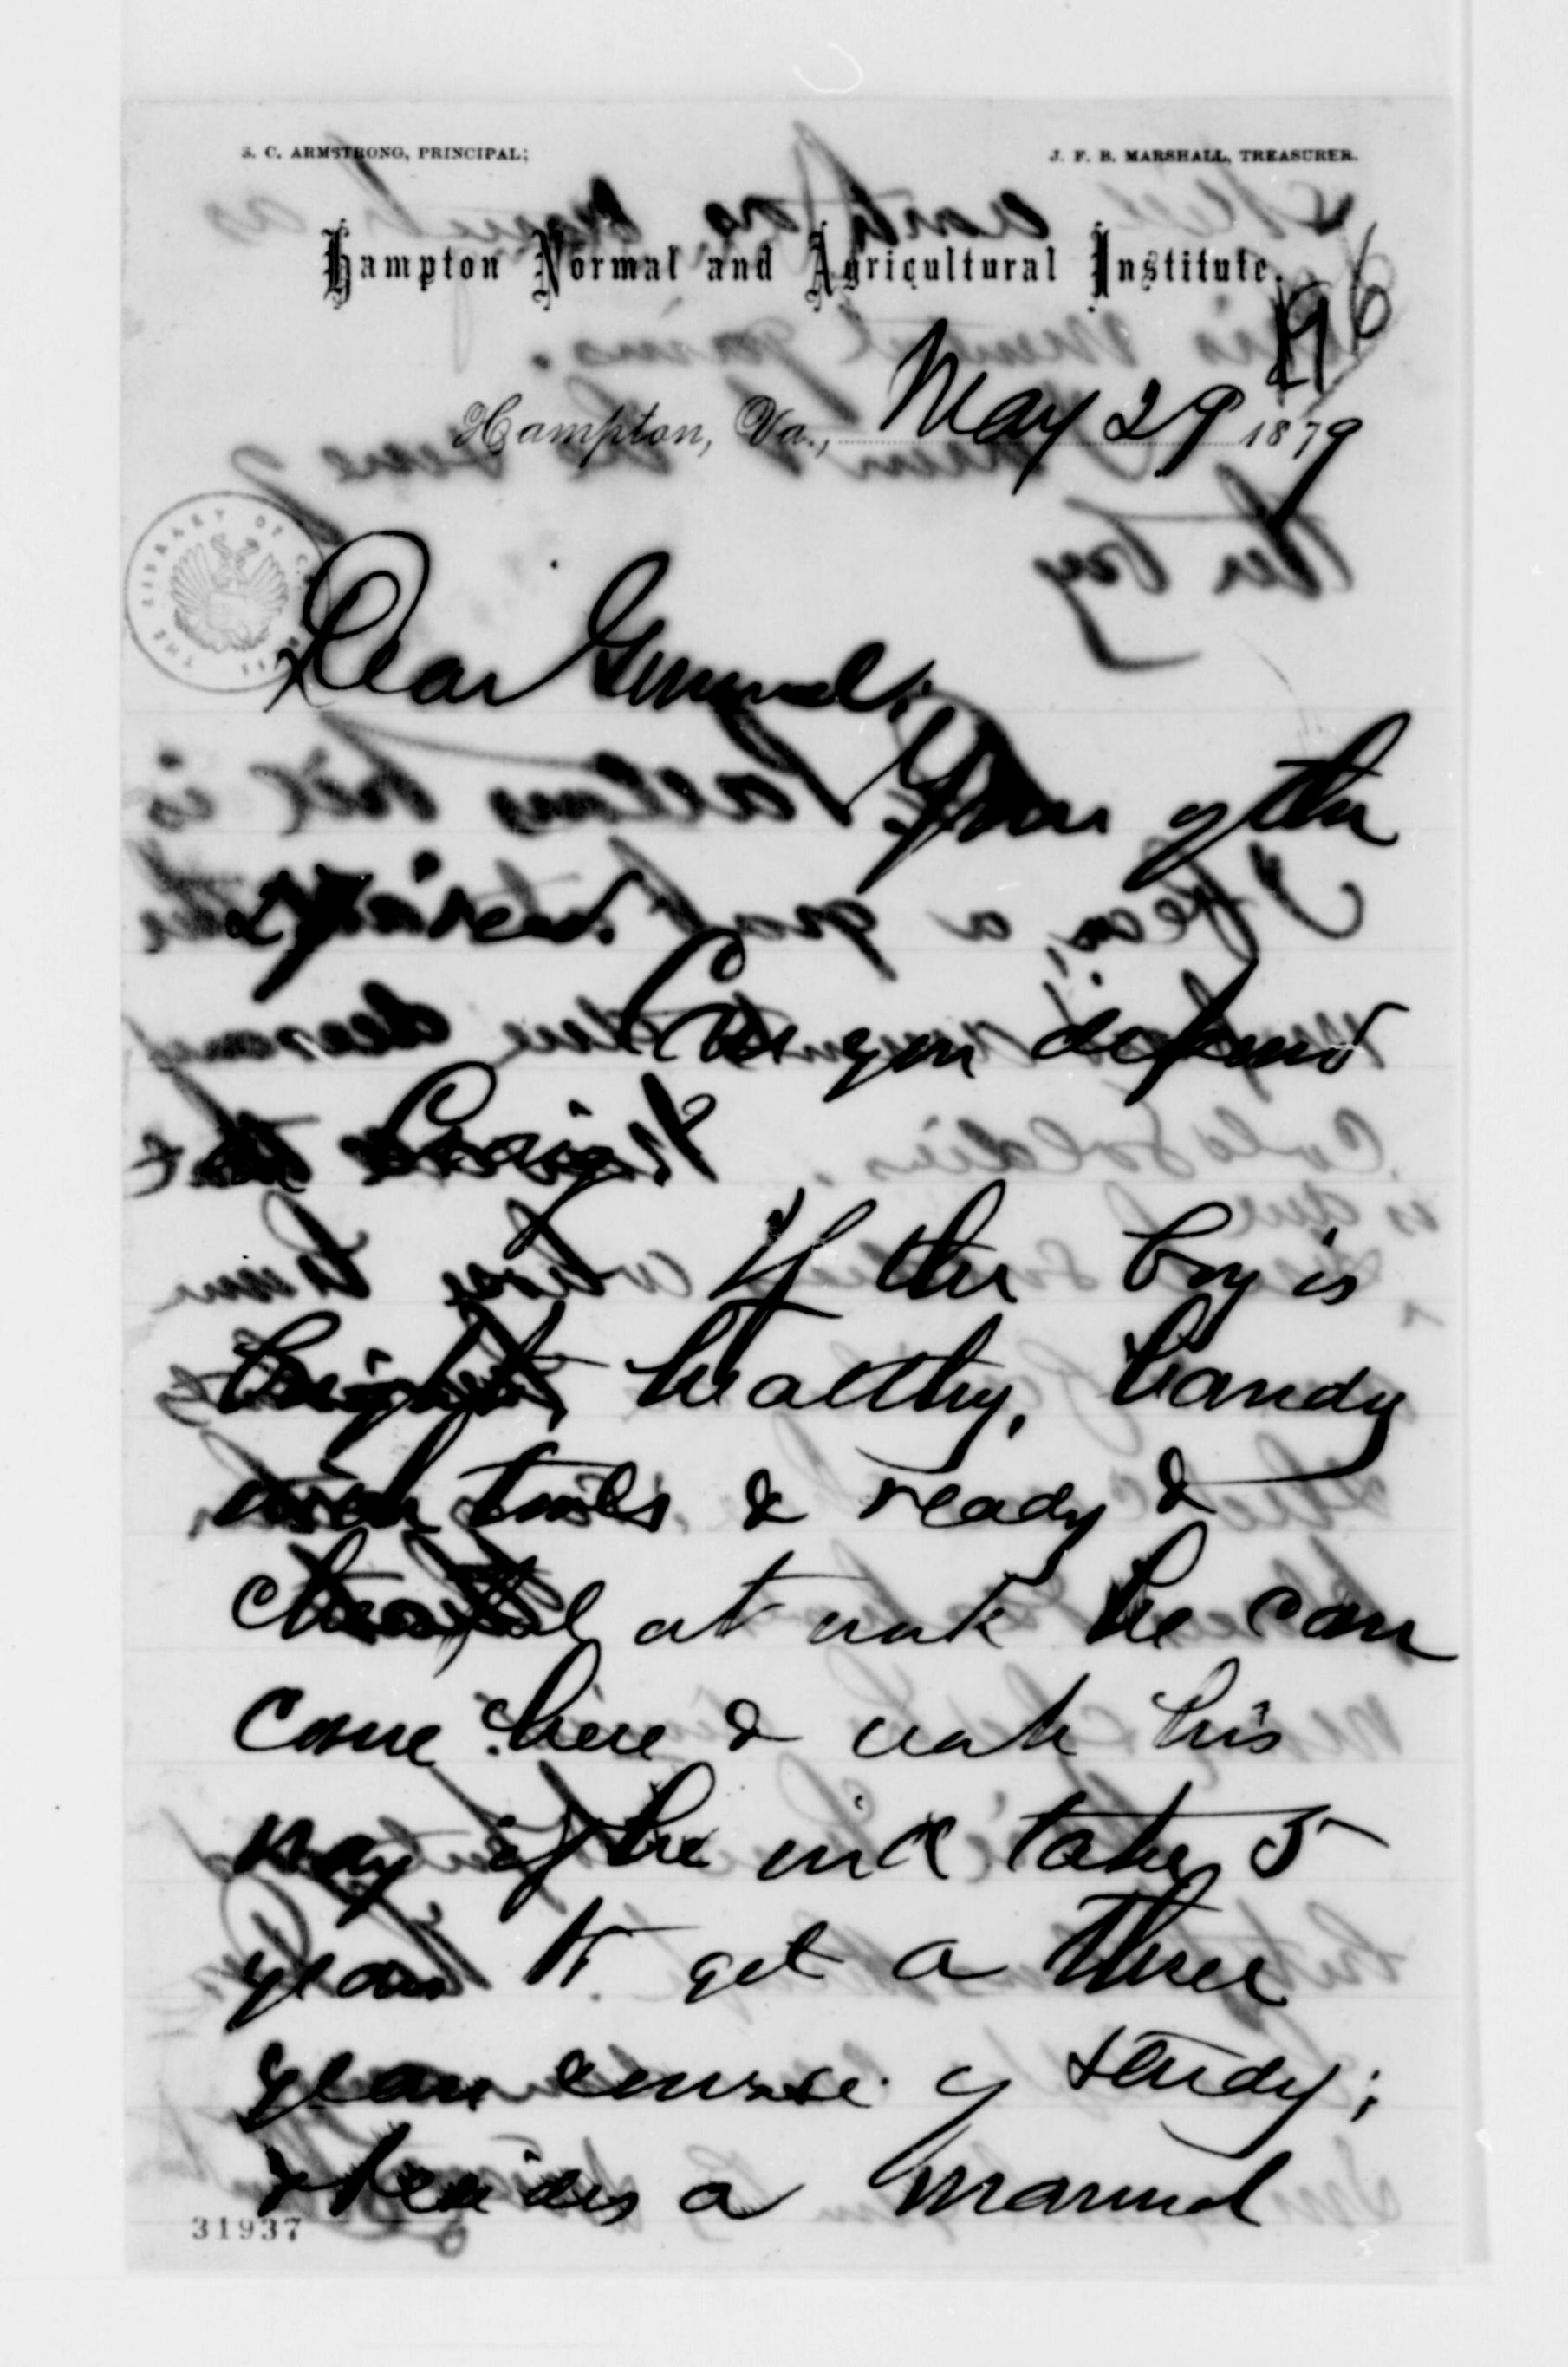 S. C. ARMSTRONG, PRINCIPAL;
J. F. B. MARSHALL, TREASURER.
Hampton Normal and Agricultural Institute.
196
Hampton, Va., May 29 1879
THE LIBRARY OF
Dear General,
Yours of the
27 received.
Can you depend
on Craig?
If the boy is
bright, healthy, handy
with tools & ready &
cheerful at work he can
come here & work his
way if he will take 5
years to get a three
years course of study;
& besides a manual
31937